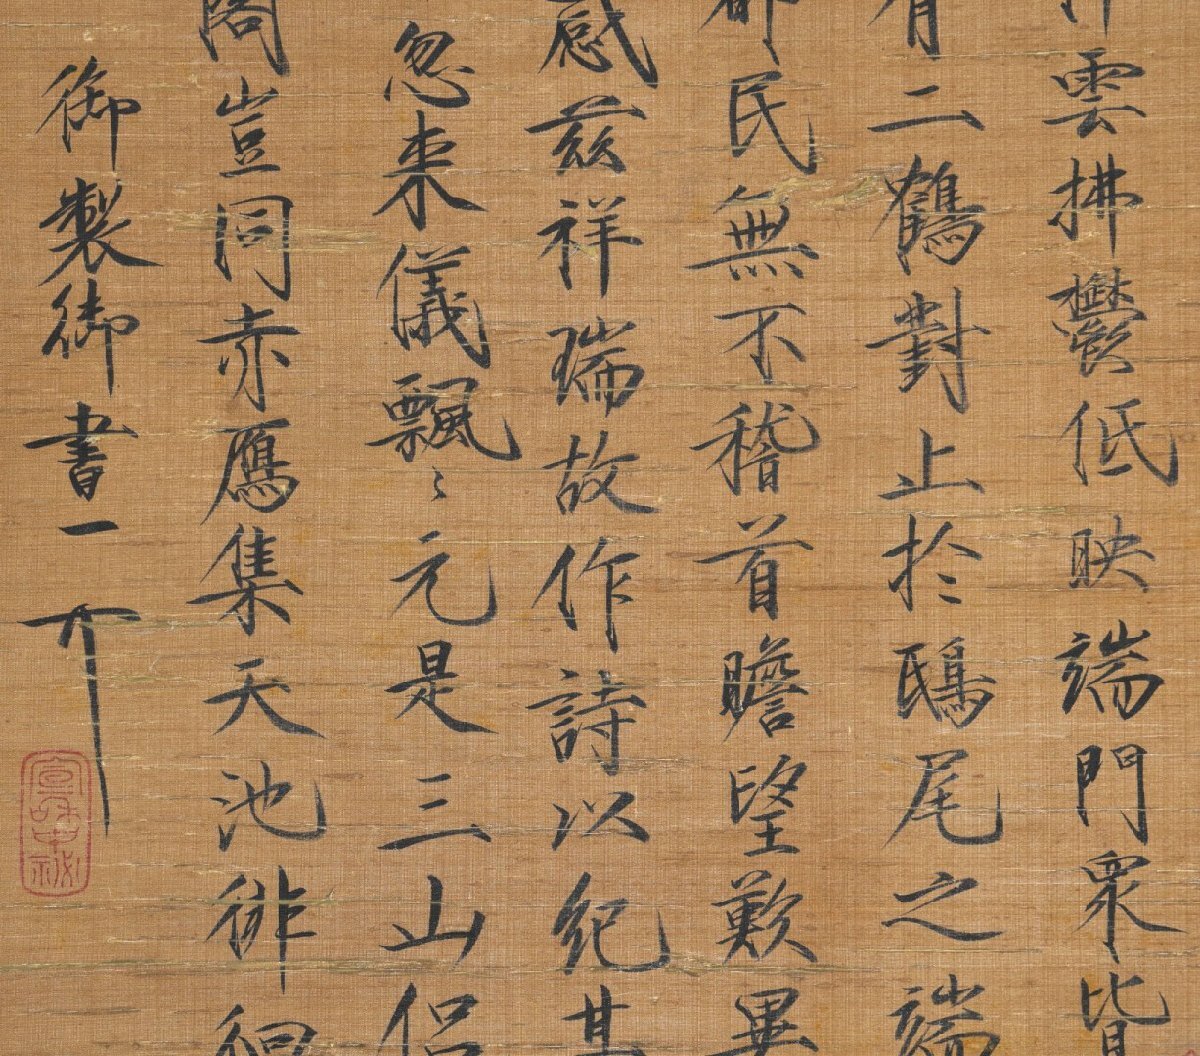 祥雲拂鬱低映端門衆皆
有二鶴對止於鴟尾之端
都民無不稽首瞻望歎異
感茲祥瑞故作詩以紀其
忽来儀飄〻元是三山侶
閣豈同赤鴈集天池徘徊
御製御書
天下一人
宣和中秘